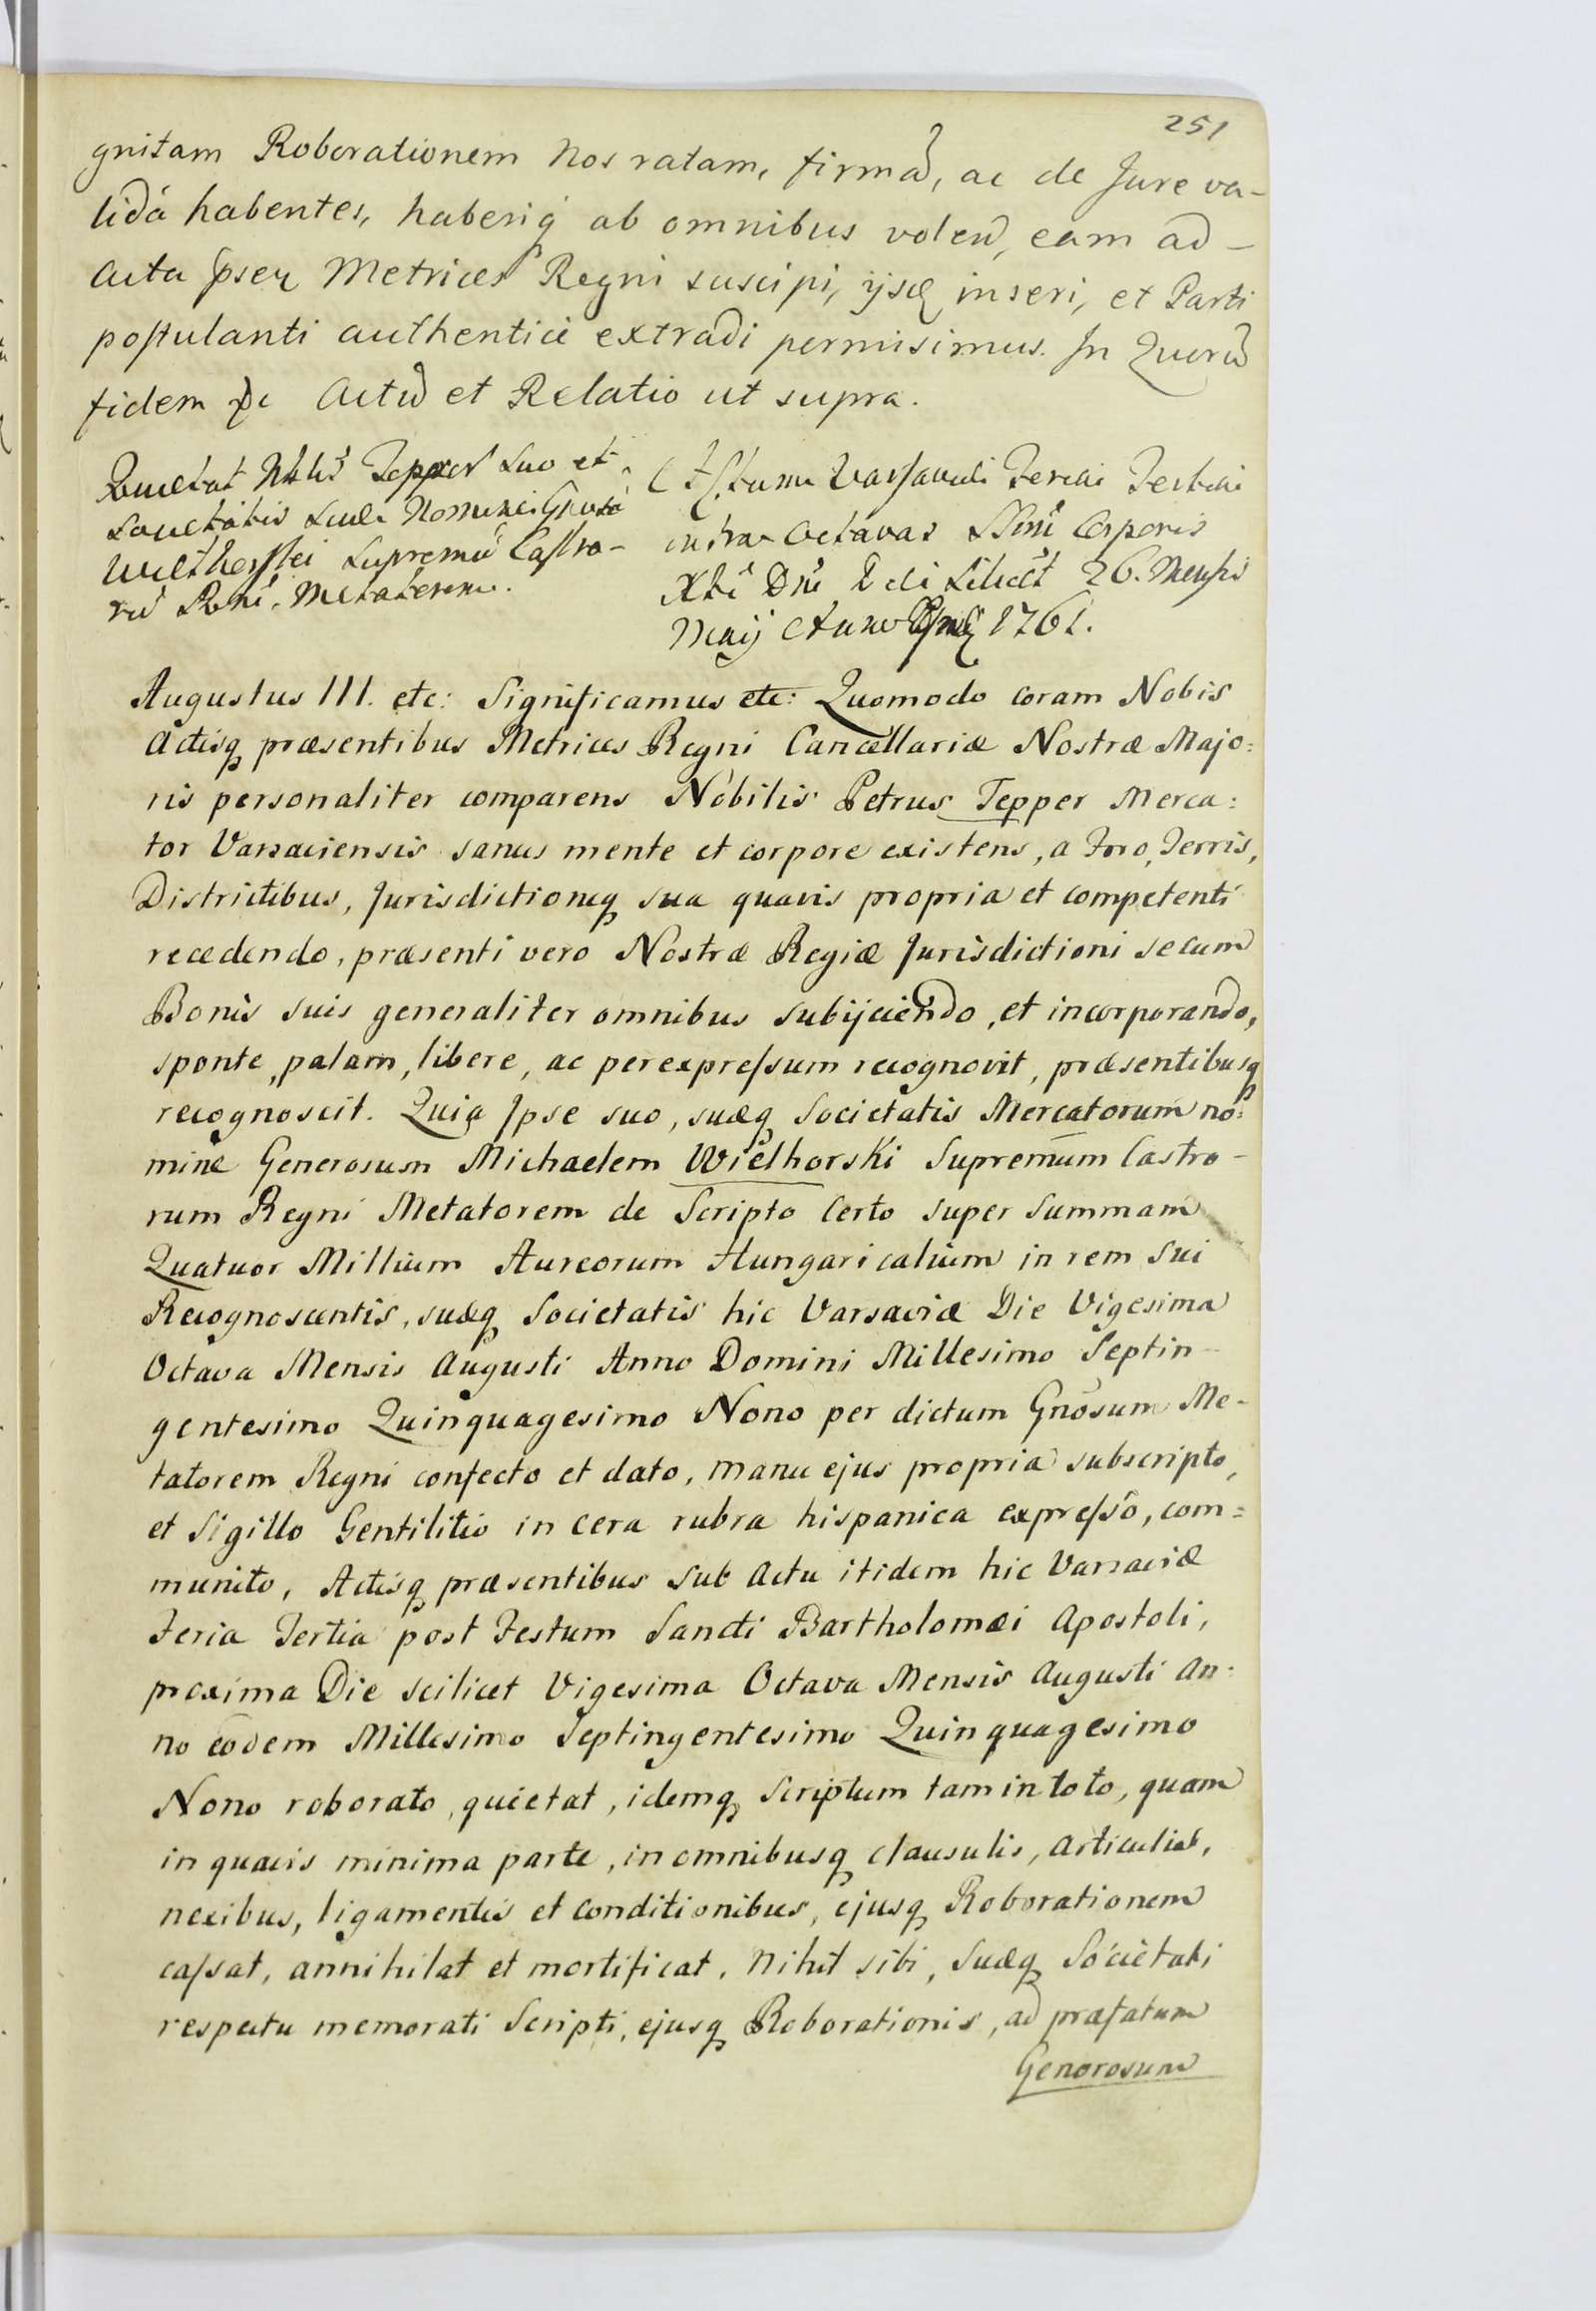 251
gnitam Roborationem Nos ratam, firmã, ac de Jure va-
lidã habentes, haberiq ab omnibus volen, eam ad-
Acta Metrices Regni suscipi, ijsq inseri, et Parti
postulanti authentice extradi permisimus. In Quorũ
fidem Actũ et Relatio ut supra.
Quietat Nblis Tepper suo et
Societatis suae Nomine Gnosũ
Wielhorski Supremũ Castro-
rũ Regni Metatorem.
Actum Varsaviae Feria Tertia
intra Octavas SSmi Corporis
Xti Dni Die Scilicet 26. Mensis
Maij Anno 1761.
Augustus III. etc: Significamus etc: Quomodo coram Nobis
Actisq præsentibus Metrices Regni Cancellariæ Nostræ Majo:
ris personaliter comparens Nobilis Petrus Tepper Merca:
tor Varsaviensis sanus mente et corpore existens, a Foro, Terris,
Districtibus, Jurisdictioneq sua quavis propria et competenti
recedendo, præsenti vero Nostræ Regiæ Jurisdictioni se cum
Bonis suis generaliter omnibus subijciendo, et incorporando,
sponte, palam, libere, ac per expressum recognovit, præsentibusq
recognoscit. Quia Ipse suo, suæq Societatis Mercatorum no:
mine Generosum Michaelem Wielhorski Supremum Castro-
rum Regni Metatorem de Scripto Certo super Summam
Quatuor Millium Aureorum Hungaricalium in rem Sui
Recognoscentis, suæq Societatis hic Varsaviæ Die Vigesima
Octava Mensis Augusti Anno Domini Millesimo Septin-
gentesimo Quinquagesimo Nono per dictum Gnosum Me-
tatorem Regni confecto et dato, manu ejus propria subscripto,
et Sigillo Gentilitio in cera rubra hispanica expresso, com=
munito, Actisq præsentibus sub Actu itidem hic Varsaviæ
Feria Tertia post Festum Sancti Bartholomæi Apostoli,
proxima Die scilicet Vigesima Octava Mensis Augusti An:
no eodem Millesimo Septingentesimo Quinquagesimo
Nono roborato, quietat, idemq Scriptum tam in toto, quam
in quavis minima parte, in omnibusq clausulis, articulis,
nexibus, ligamentis et conditionibus, ejusq Roborationem
cassat, annihilat et mortificat. Nihil sibi, suæq Societati
respectu memorati Scripti, ejusq Roborationis, ad præfatum
Generosum